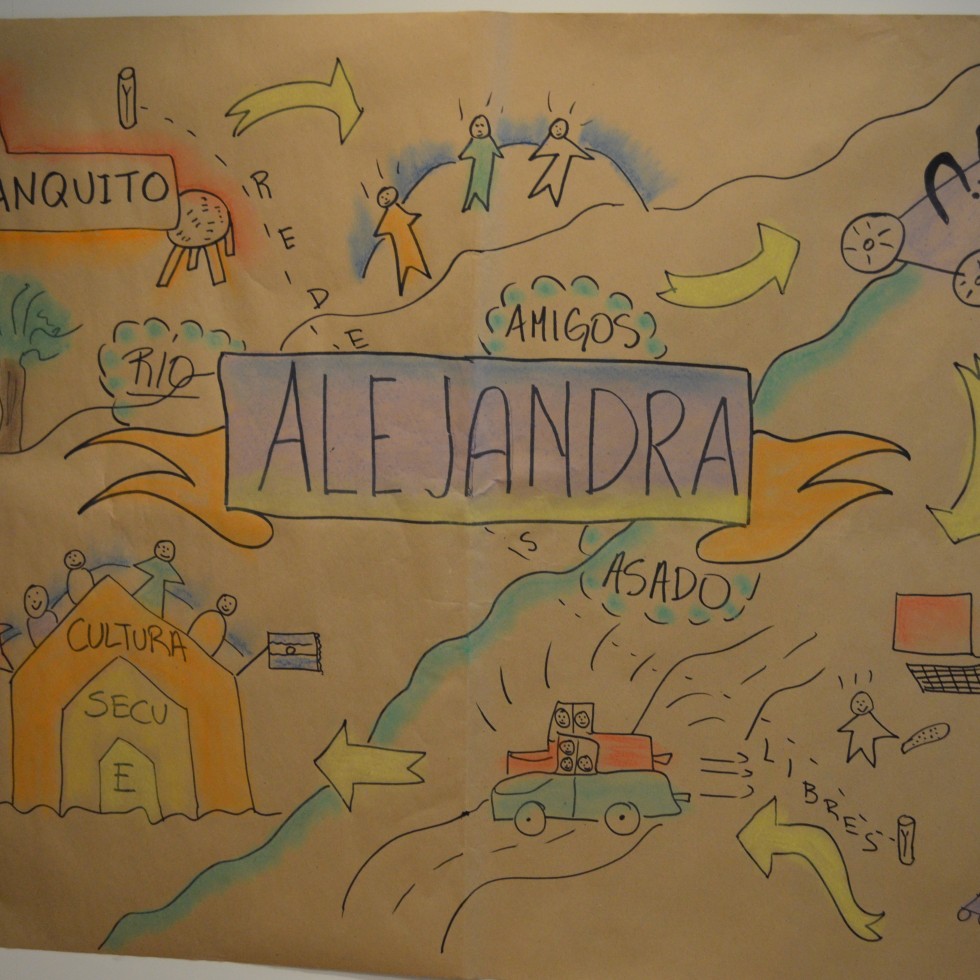 Y
ANQUITO
REDES
AMIGOS
RÍO
ALEJANDRA
ASADO
CULTURA
SECU
E
LIBRES
Y